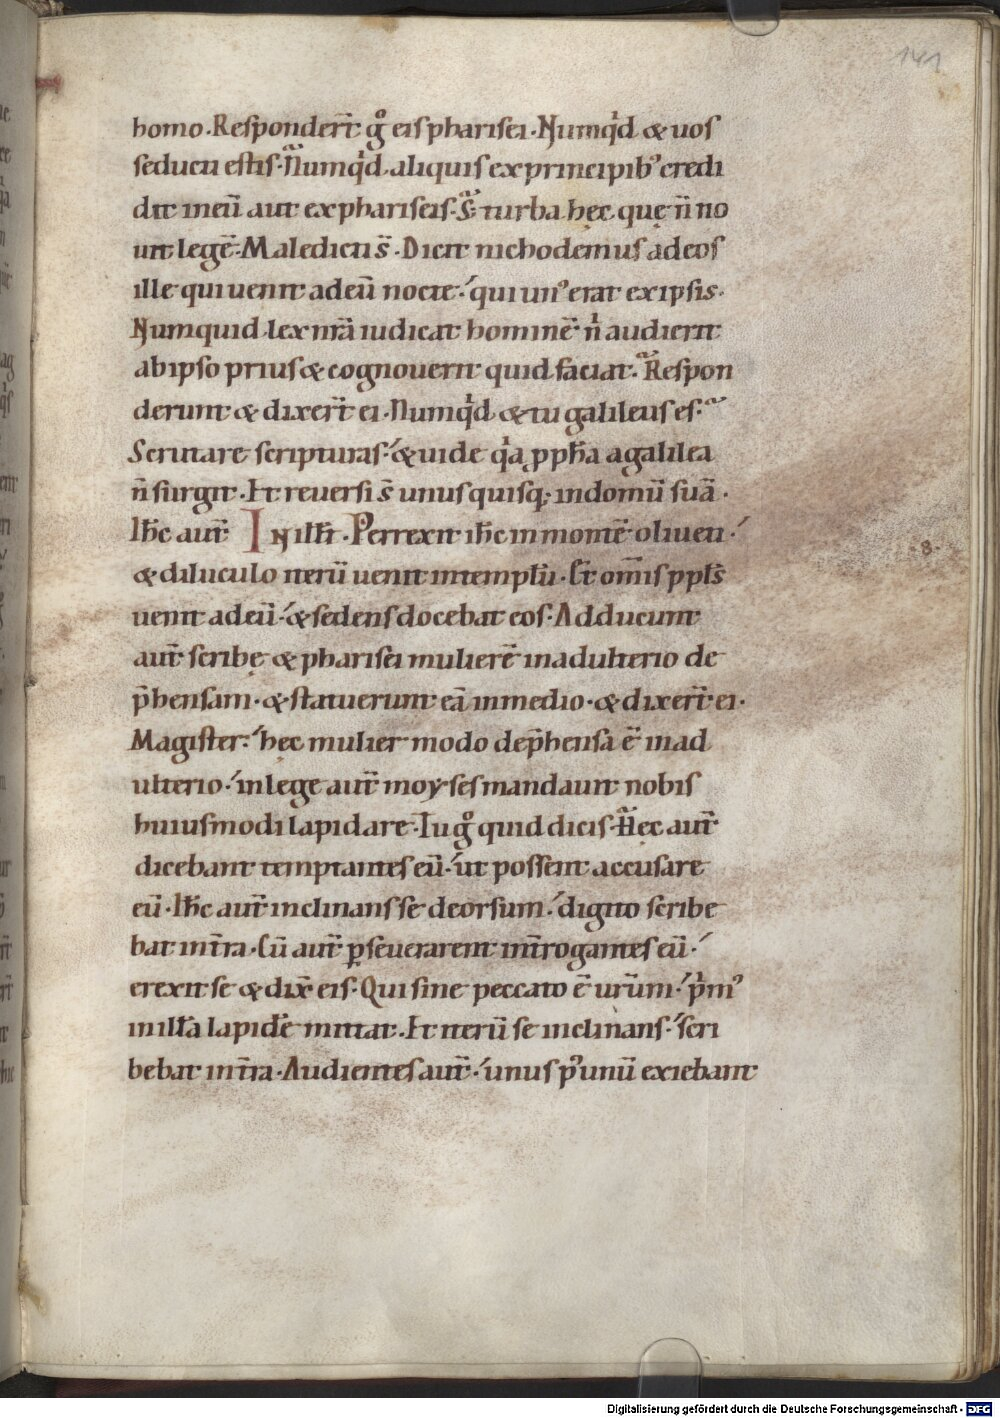 141
homo. Responder̄t gͦ eis pharisei. Numqͥd & uos
seducti estis. Numqͥd aliquis ex principib' credi
dit in eū aut ex phariseis. S; turba hęc quę n̄ no
uit legē. Maledicti s̄. Dicit nichodemus ad eos
ille qui uenit ad eū nocte. qui un' erat ex ipsis.
Numquid lex nr̄a iudicat hominē nͥ audierit
ab ipso prius & cognouerit quid faciat. Respon
derunt & dixer̄t ei. Numqͥd & tu galileus es.
Scrutare scripturas. & uide qͥa pph̄a a galilea
n̄ surgit. Et reuersi s̄ unusquisq; in domū suā.
Ih̄c aut̄ In ill̄r. Perrexit ih̄c in montē oliueti.
& diluculo iterū uenit in templū. Et om̄is ppl̄s
uenit ad eū. & sedens docebat eos. Adducunt
aut̄ scribę & pharisei mulierē in adulterio de
p̄hensam. & statuerunt eā in medio. & dixer̄t ei.
Magister. hęc mulier modo dep̄hensa ē in ad
ulterio. in lege aut̄ moyses mandauit nobis
huiusmodi lapidare. Tu gͦ quid dicis. Hęc aut̄
dicebant temptantes eū. ut possent accusare
eū. Ih̄c aut̄ inclinans se deorsum. digito scribe
bat in t̄ra. Cū aut̄ ꝑseuerarent int̄rogantes eū.
erexit se & dix̄ eis. Qui sine peccato ē ur̄um. pͥm'
in ill̄a lapidē mittat. Et iterū se inclinans. scri
bebat in t̄ra. Audientes aut̄. unus p' unū exiebant
.8.
Digitalisierung gefördert durch die Deutsche Forschungsgemeinschaft - DFG